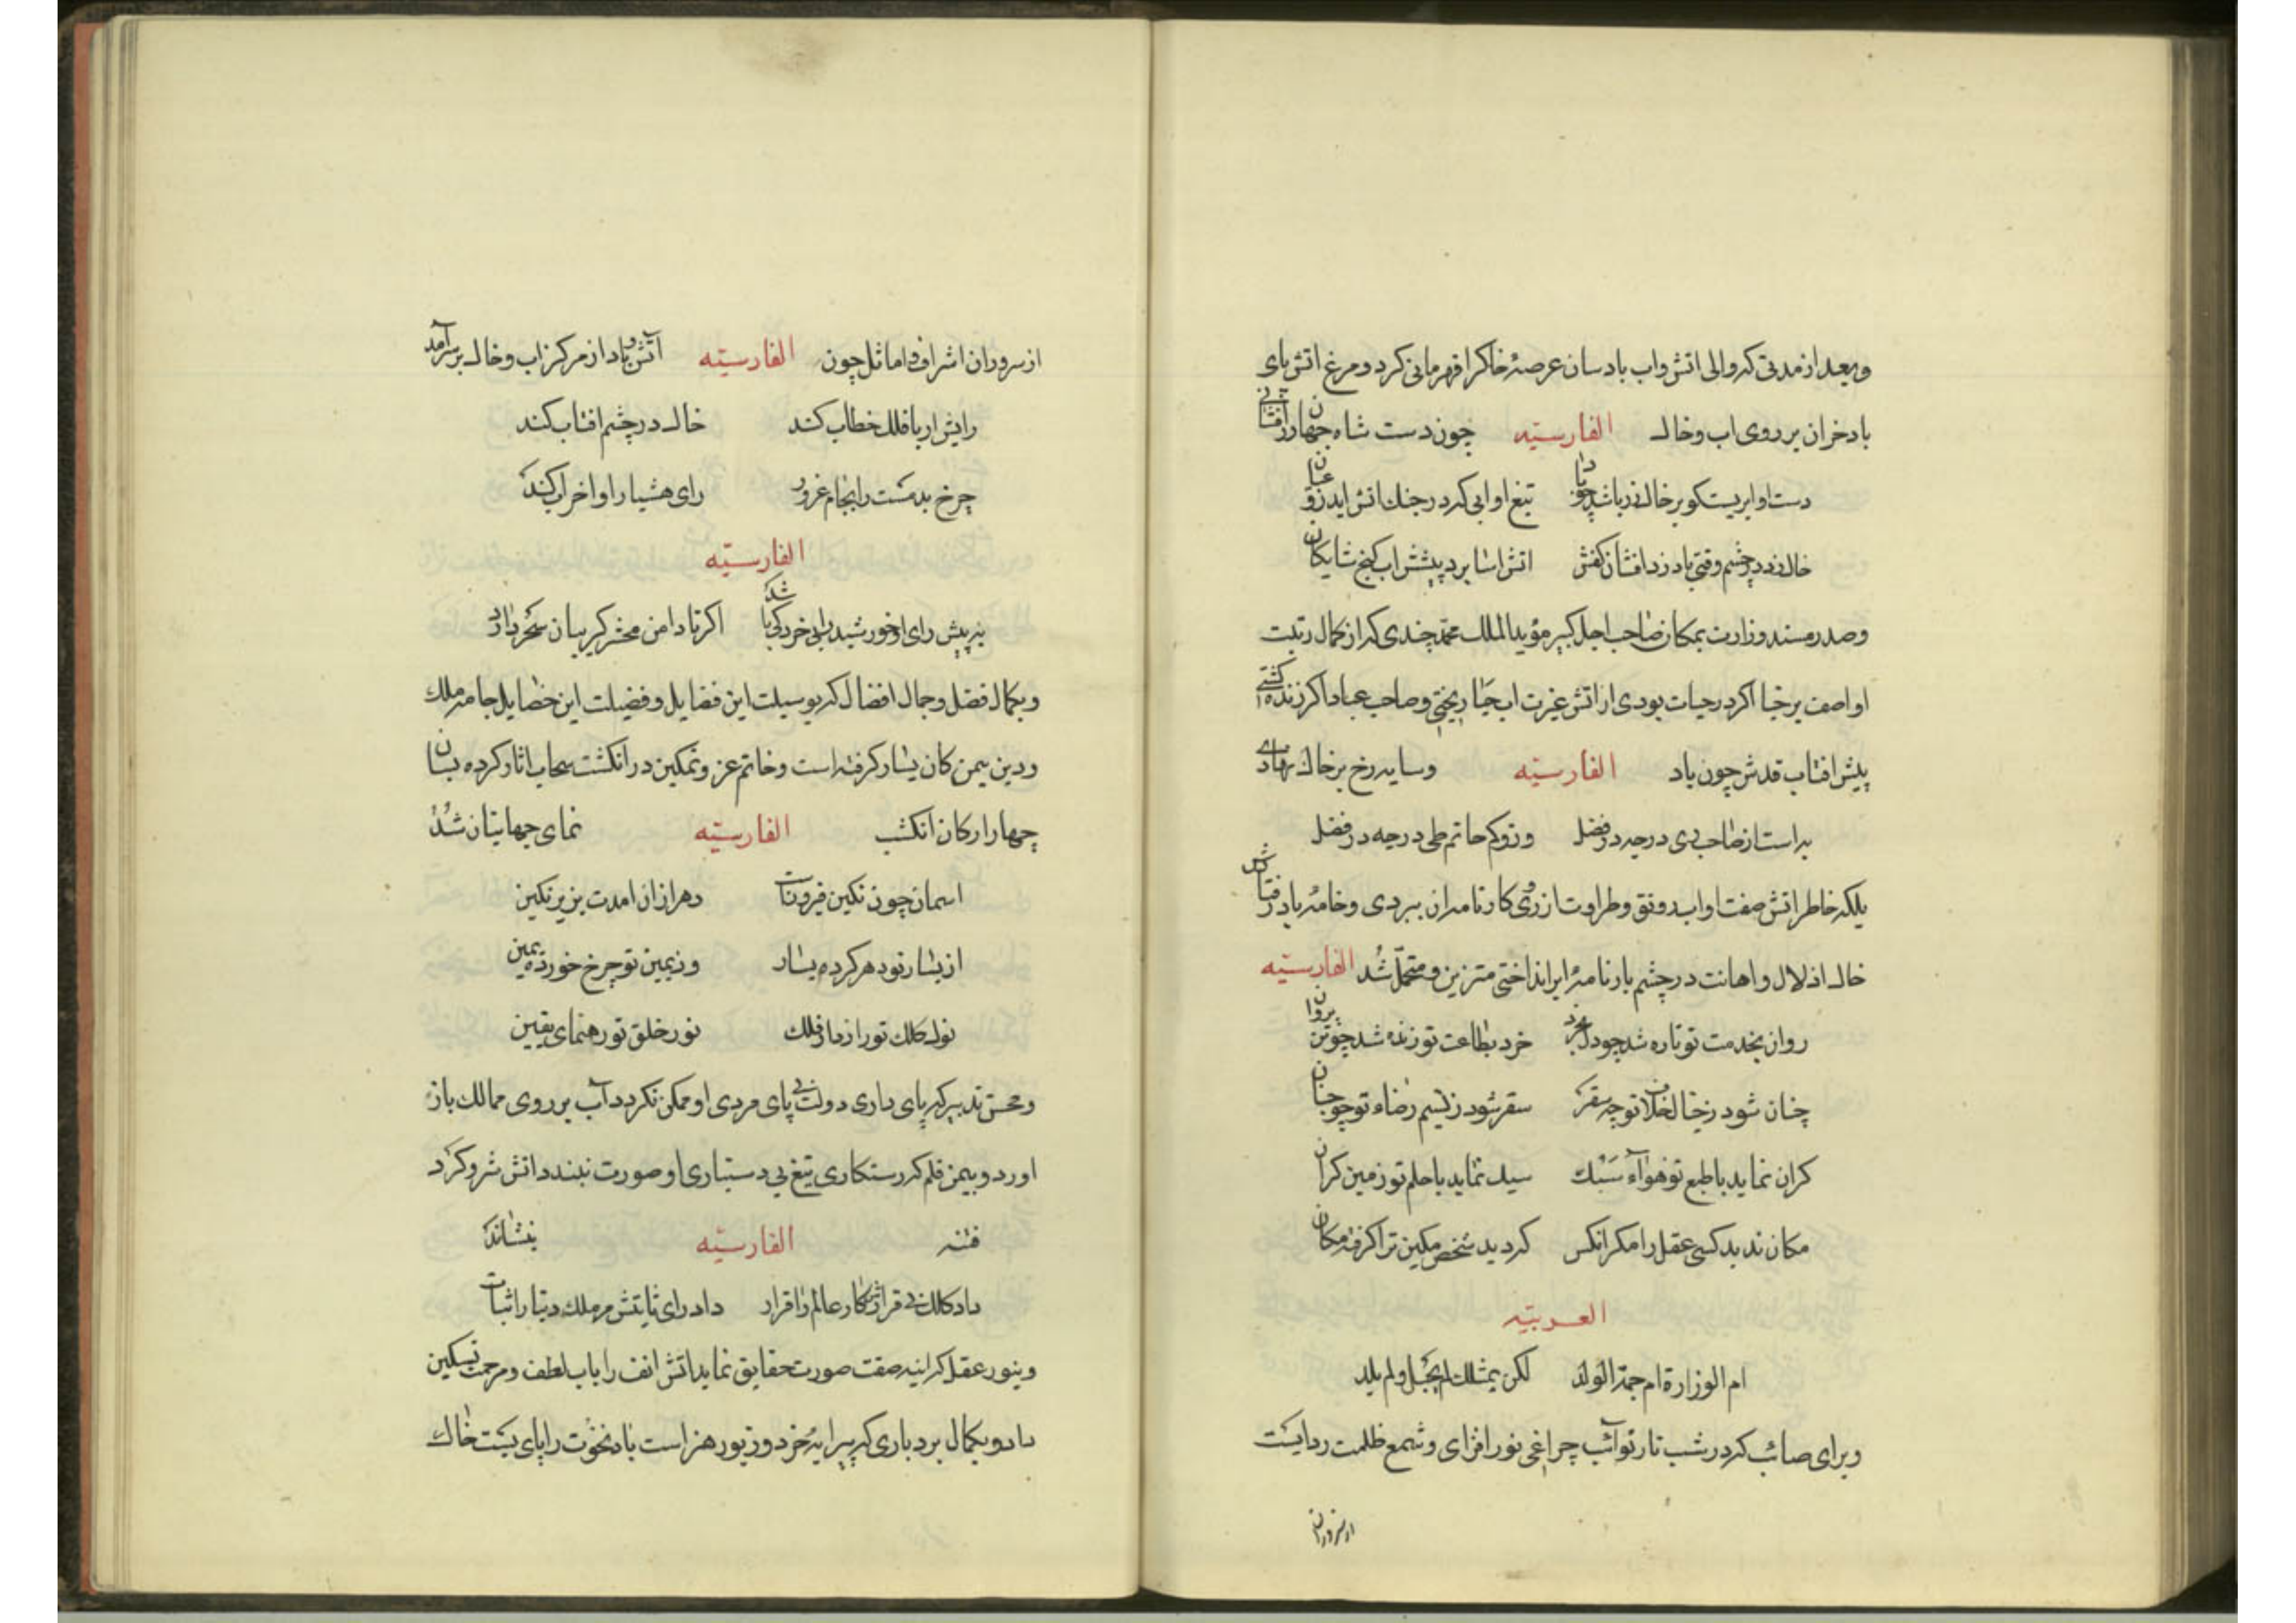 وبعد از مدتی که والی اتش واب باد سان عرصهٔ خاکرا قهرمانی کرد و مرغ اتش پای
باد خران بر روی اب وخاک الفارسیّه چون دست شاه جهان زرافشانی
دست او ابریست کو بر خاک زر باشد چو باد تیغ او ابی که در جنک اتش اید زو عیان
خاک زد در چشم وقتی باد زر افشان کفش اتش اسا برد پیشش اب کنج شایکان
وصدر مسند وزارت بمکان صاحب اجل کبیر مؤید الملک محمد چندی که از کمال رتبت
او اصف برخیا اکر در حیات بودی از اتش غیرت اب حیا ریختی وصاحب عباد اکر زنده کشتی
پیش افتاب قدش چون باد الفارسیّه وسایه رخ بر خاک نهادی
بر استان صاحب ری درجه در فضل وزو کم حاتم طی درجه در فضل
بلکه خاطر اتش صفت او اب رونق وطراوت از روی کارنامه ان ببردی وخامهٔ باد رفتارش
خاک اذلال واهانت در چشم بارنامهٔ این انداختی متزین ومتجمل شد الفارسیّه
روان بخدمت تو تازه شد چو دل بخرد خرد بطاعت تو زنده شد چو تن بروان
چنان شود ز خیال خلاف تو چو سقر سقر شود ز نسیم رضاء تو چو جنان
کران نماید با طبع تو هوآء سَبُک سبک نماید با حلم تو زمین کران
مکان ندید کسی عقل را مکر انکس که دید شخص مکین ترا کرفته مکان
العربیّه
ام الوزارة ام جمّة الولد لکن بمثلک لم تحبل ولم یلد
وبرای صائب که در شب تار نوآئب چراغی نور افزای وشمع ظلمت زدایست
از سروران
از سروران اشراف و اماثل چون الفارسیّه آتش و باد از مرکز اب وخاک بر سرآمد
رایش ار با فلک خطاب کند خاک در چشم افتاب کند
چرخ بدمست را بجام غرور رای هشیار او خراب کند
الفارسیّه
به پیش رای او خورشید رابی خردکی باشد اکر تا دامن محشر کریبان سحر دارد
وبکمال فضل وجمال افضال که بوسیلت این فضایل وفضیلت این خصایل جامهٔ ملک
ودین بیمن کان یسار کرفته است وخاتم عز وتمکین در انکشت سحاب اثار کرده بسان
چهار ارکان انکشت الفارسیّه نمای جهانیان شُدْ
اسمان چون نکین فیروزت دهر ازان امدت بزیر نکین
از یسار تو دهر کرده یسار وز یمین تو چرخ خورده یمین
نوک کلک تو رازدار فلک نور خلق تو رهنمای یقین
وحسن تدبیر که پای داری دولت بی پای مردی او ممکن نکردد آب بر روی ممالک باز
اورد وبیمن قلم که رستکاری تیغ بی دستیاری او صورت نبندد اتش شر وکرد
فتنه الفارسیّه بنشاند
داد کلک بی قرارش کار عالم را قرار داد رای ثابتش مر ملک دنیا را ثبات
وبنور عقل که اینه صفت صورت حقایق نماید اتش انف را باب لطف ومرحمت تسکین
داد وبکمال بردباری که پیرایهٔ خرد وزیور هنر است باد نخوت را پای پشت خاک